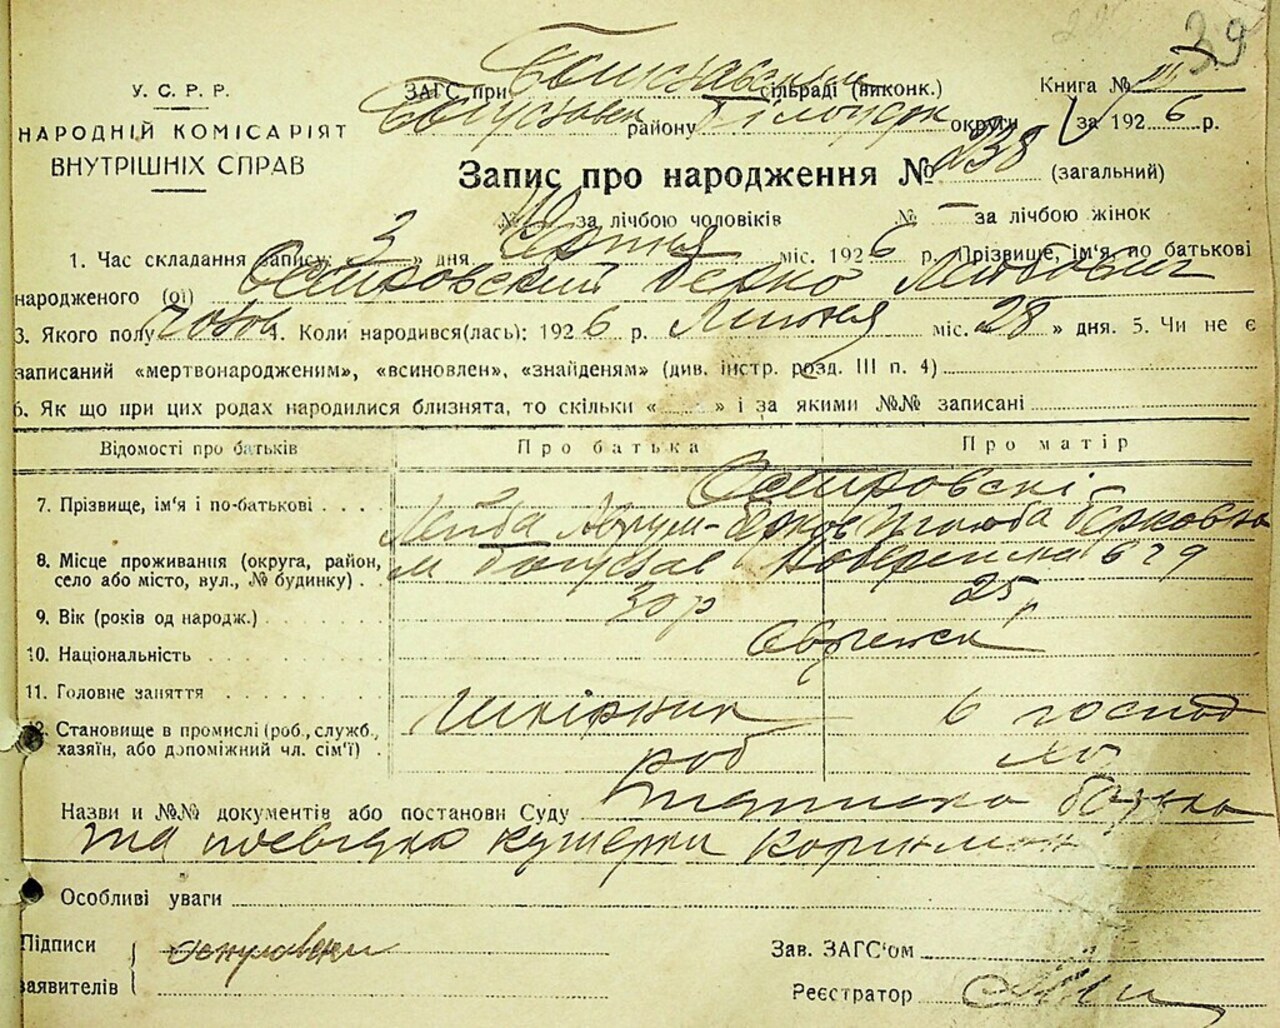 39
У. С. Р. Р.
НАРОДНІЙ КОМІСАРІЯТ
ВНУТРІШНІХ СПРАВ
ЗАГС при Богуславськ сільраді (виконк.) Книга № III
Богуславськ району Білоцерк округи за 1926 р.
Запис про народження № 238 (загальний)
№ за лічбою чоловіків № — за лічбою жінок
1. Час складання запису: 3 » дня Серпня міс. 1926 р. Прізвище, ім'я по батькові
народженого (ої) Островский Берко Лейбович
3. Якого полу чолов 4. Коли народився(лась): 1926 р. Липня міс. 28 » дня. 5. Чи не є
записаний «мертвонародженим», «всиновлен», «знайденям» (див. інстр. розд. III п. 4)
6. Як що при цих родах народилися близнята, то скільки « » і за якими №№ записані
Відомості про батьків Про батька Про матір
7. Прізвище, ім'я і по-батькові Островскі
Лейба Аврум-Берков Берковна
8. Місце проживання (округа, район, село або місто, вул., № будинку) м Богуслав
9. Вік (років од народж.) 30 р 25 р
10. Національність Єврейськ
11. Головне заняття Шкірник госпо
12. Становище в промислі (роб., служб., хазяїн, або допоміжний чл. сім'ї) роб
Назви и №№ документів або постанови Суду підписка батька
та посвідка кушерки
Особливі уваги
Підписи
заявителів
Зав. ЗАГС'ом
Реєстратор